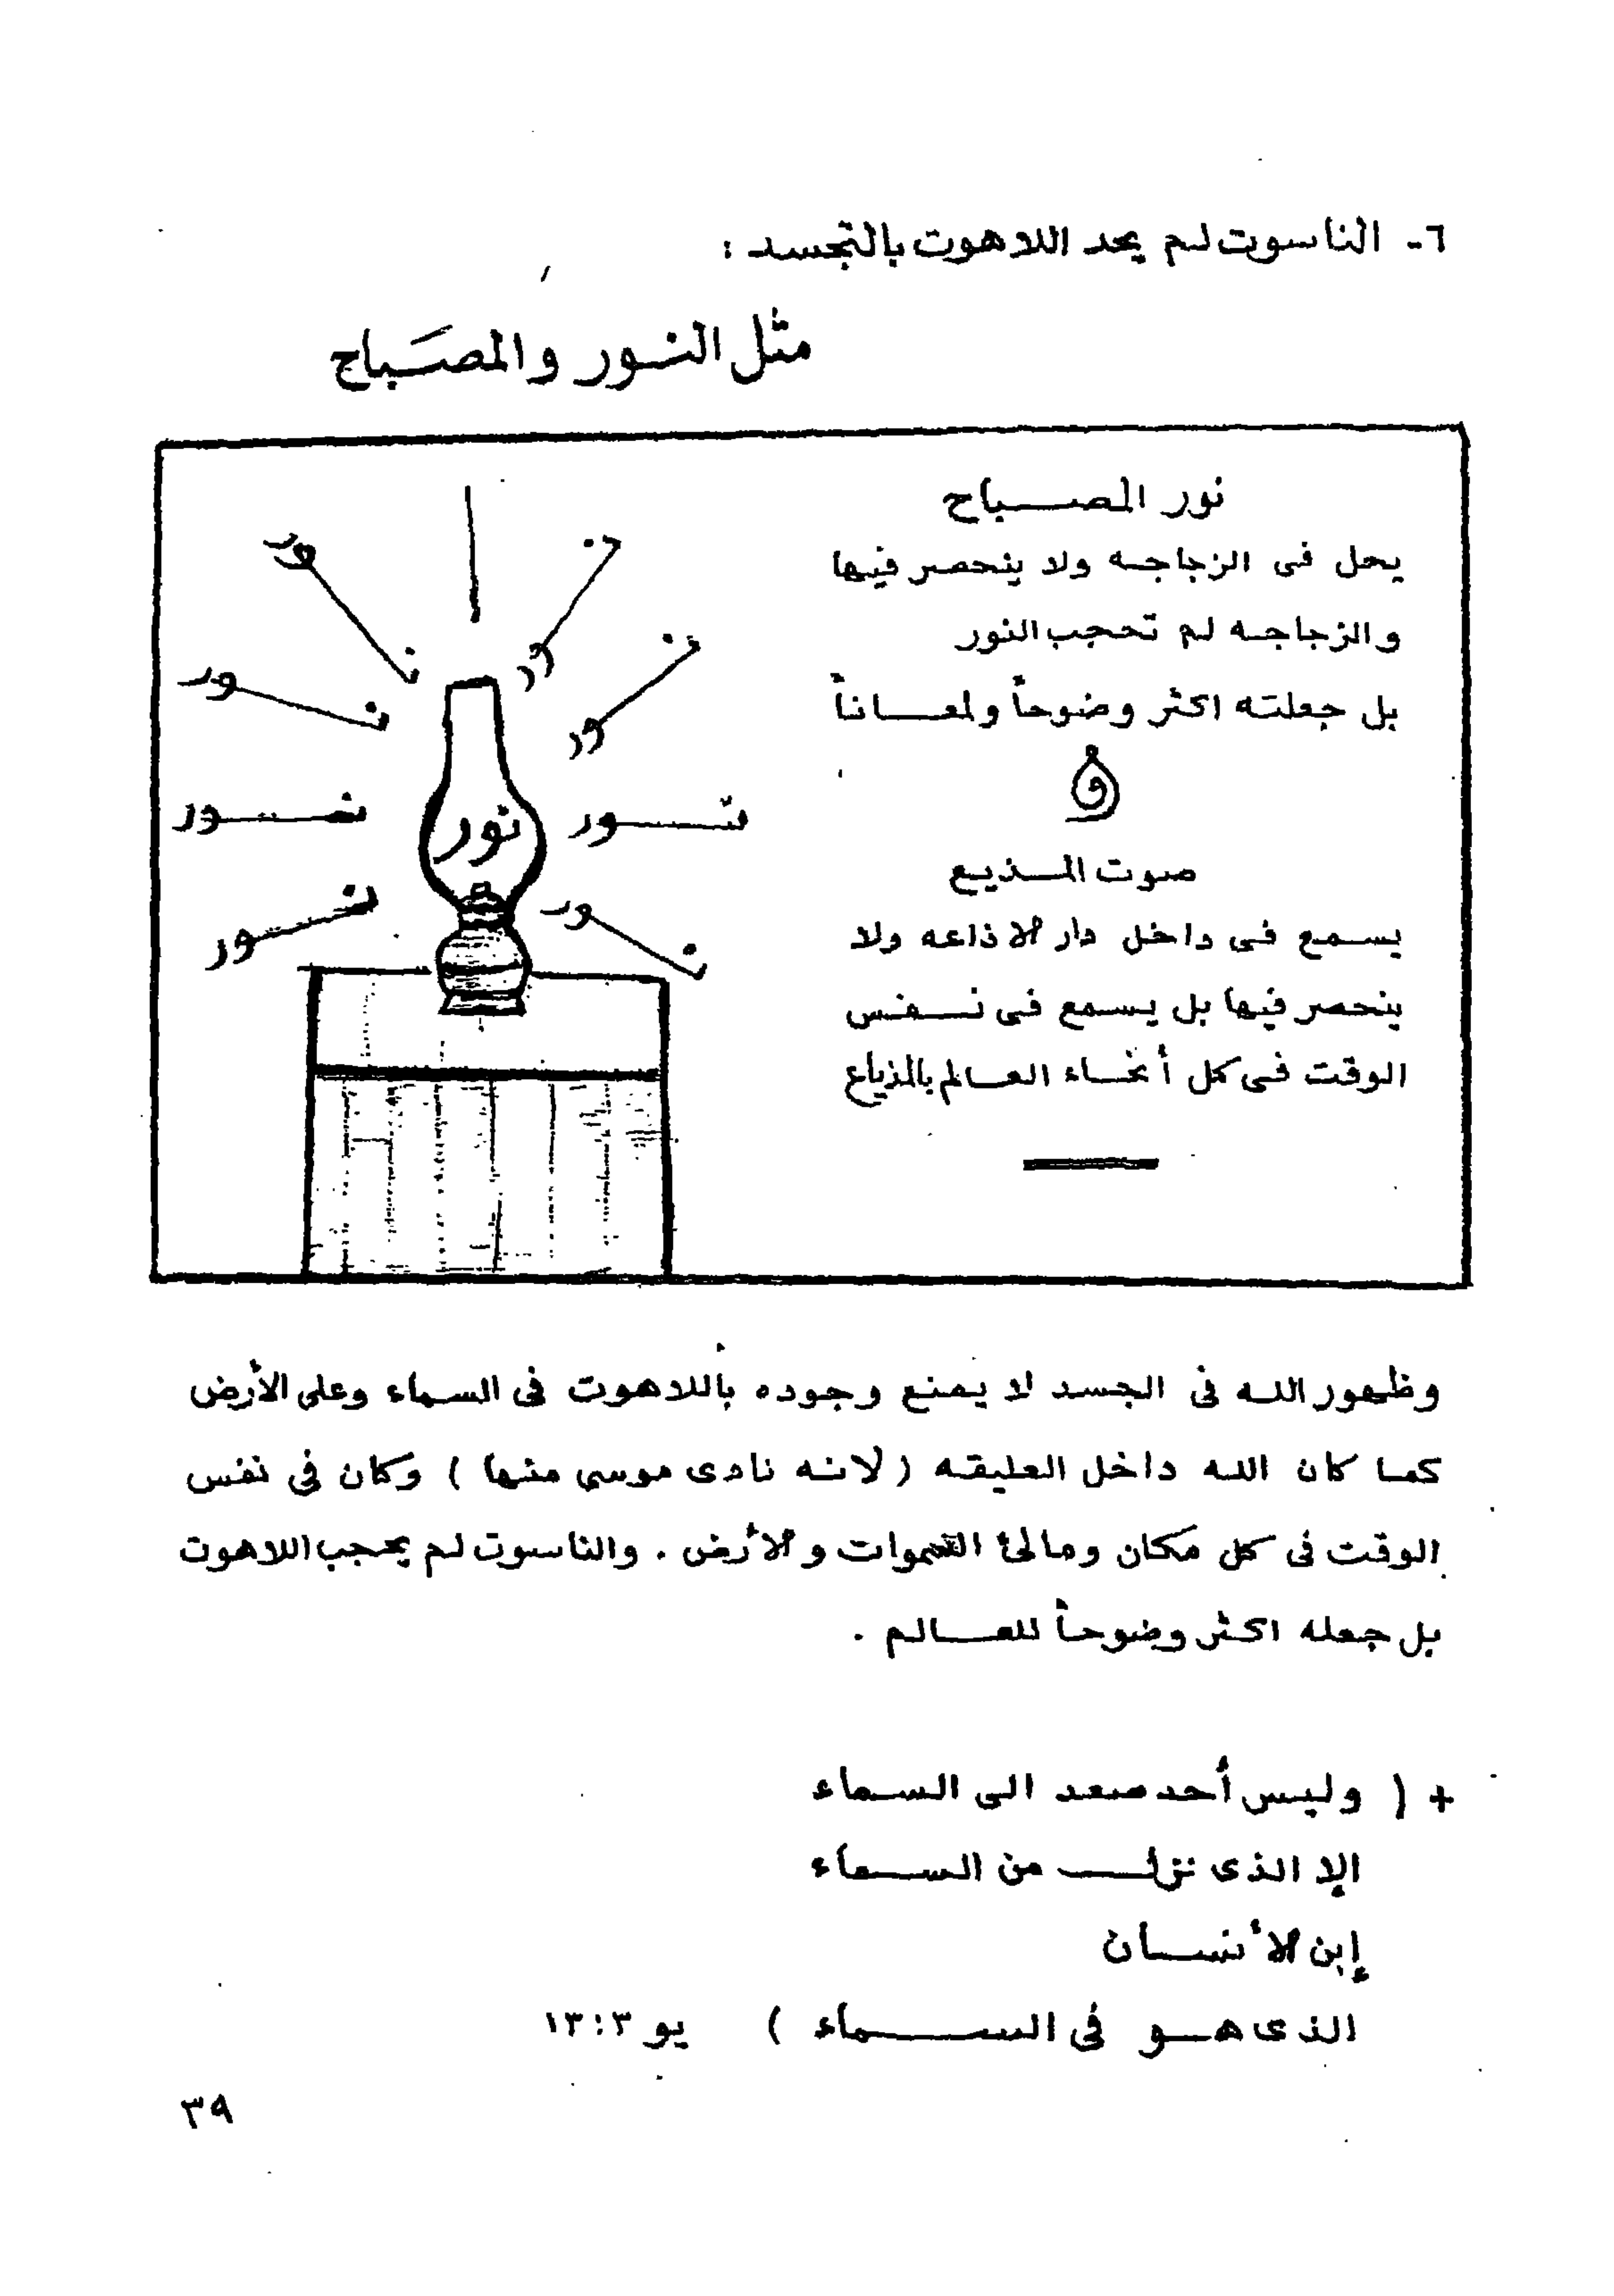 ٦- الناسوت لم يحد اللاهوت بالتجسد :
مثل النور والمصَباح
نور المصباح
يحل فى الزجاجه ولا ينحصر فيها
والزجاجه لم تحجب النور
بل جعلته اكثر وضوحاً ولمعاناً
و
صوت المذيع
يسمع فى داخل دار الاذاعه ولا
ينحصر فيها بل يسمع فى نفس
الوقت فى كل أنحاء العالم بالمذياع
نور
نور
نور
نور
نور
نور
نور
نور
نور
وظهور الله فى الجسد لا يمنع وجوده بأللاهوت فى السماء وعلى الأرض
كما كان الله داخل العليقه ( لانه نادى موسى منها ) وكان فى نفس
الوقت فى كل مكان ومالئ السموات والأرض . والناسوت لم يحجب اللاهوت
بل جعله اكثر وضوحاً للعالم .
+ ( وليس أحد صعد الى السماء
إلا الذى نزل من السماء
إبن الأنسان
الذى هو فى السماء ) يو ٣ : ١٣
٣٩